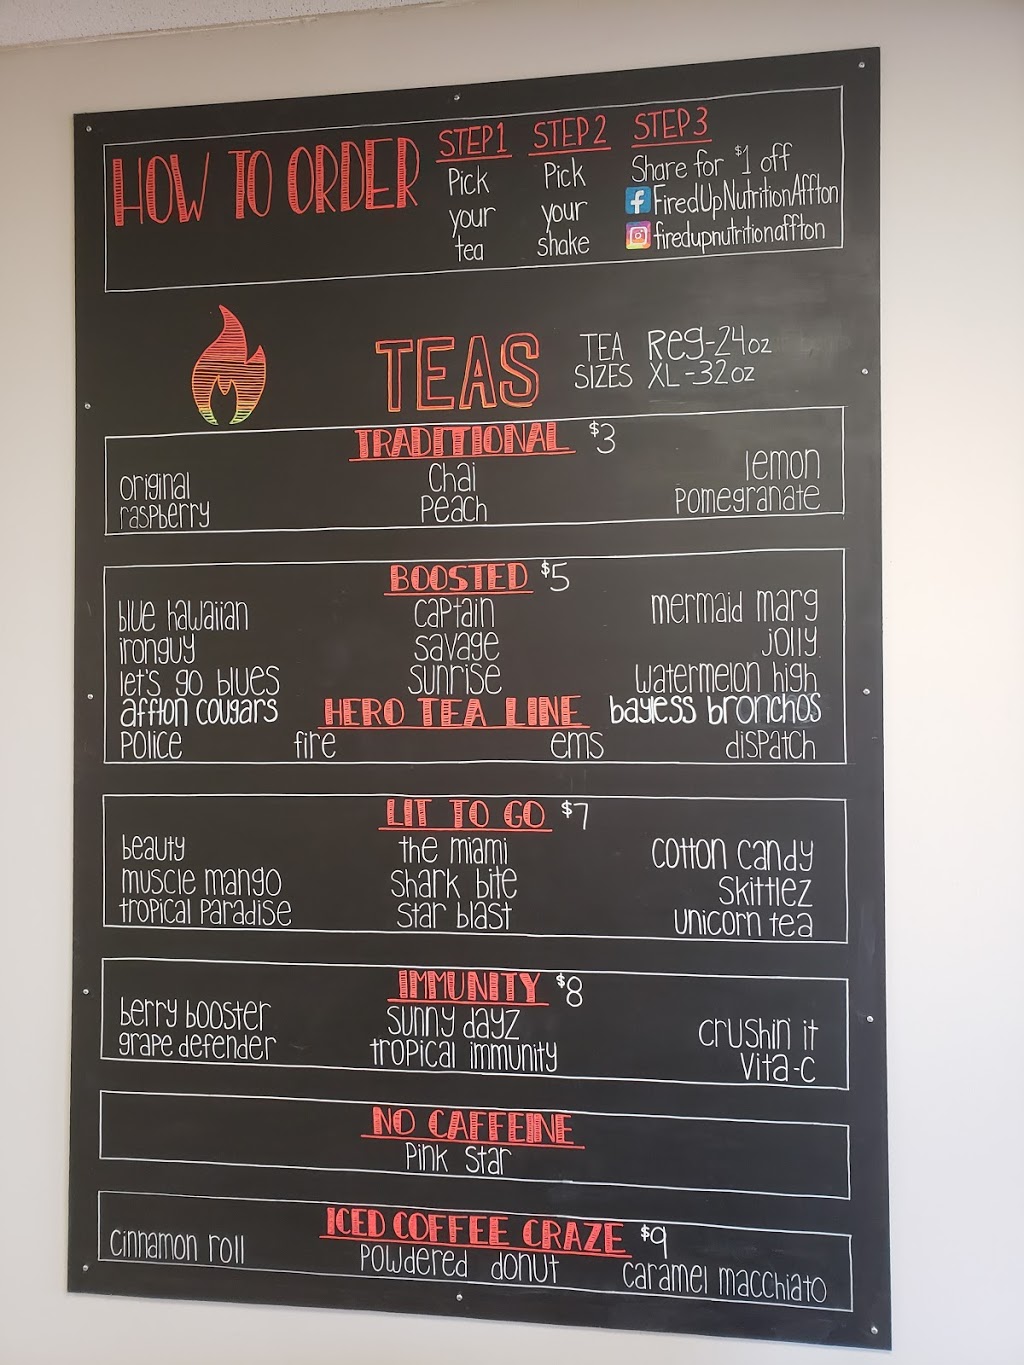 HOW TO ORDER
STEP 1
Pick
your
tea
STEP 2
Pick
your
shake
STEP 3
Share for $1 off
FiredUpNutritionAffton
firedupnutritionaffton
TEAS
TEA SIZES
Reg-24oz
XL-32oz
TRADITIONAL $3
original
raspberry
chai
peach
lemon
pomegranate
BOOSTED $5
blue hawaiian
ironguy
let's go blues
affton cougars
captain
savage
sunrise
mermaid marg
jolly
watermelon high
bayless bronchos
HERO TEA LINE
police fire ems dispatch
LIT TO GO $7
beauty
muscle mango
tropical paradise
the miami
shark bite
star blast
cotton candy
skittlez
unicorn tea
IMMUNITY $8
berry booster
grape defender
sunny dayz
tropical immunity
crushin' it
vita-c
NO CAFFEINE
pink star
ICED COFFEE CRAZE $9
cinnamon roll powdered donut caramel macchiato